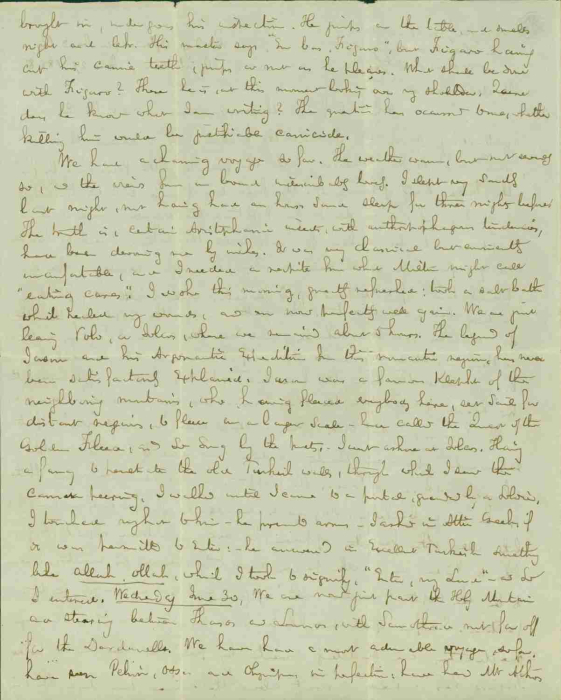 brought in, undergoes his inspection. He jumps on the table, and smells
right and left. His master says "En bas, Figaro", but Figaro having
cut his canine teeth, jumps or not as he pleases. What shall be done
with Figaro? There he is, at this moment looking over my shoulder.
does he know what I am writing? The question has occurred to me, whether
killing him would be justifiable canicide.
We have a charming voyage so far. The weather warm, but not
so, as the views from on board
last night, not having had an hour's sound sleep for three nights before.
The truth is, certain Aristophanic insects, with anthropophagous tendencies,
have been devouring me by inches. It was very classical but eminently
uncomfortable, and I needed a respite from what Milton might call
"eating cares". I woke this morning, greatly refreshed: took a salt bath
which healed my wounds, and am now perfectly well again. We are just
leaving Volo, or Iolcos, where we remained about 5 hours. The legend of
Jason and his Argonautic Expedition from this romantic region, has never
been satisfactorily explained. Jason was a famous Klepht of the
neighboring mountains, who having fleeced everybody here, set sail for
distant regions, to fleece on a larger scale - hence called the Quest of the
Golden Fleece, and so sung by the poets. I went ashore at Iolcos. Having
a fancy to penetrate the old Turkish walls, through which I saw the
cannon peering, I walked until I came to a portal, guarded by a soldier.
I touched my hat to him - he presented arms - I asked in Attic Greek if
it was permitted to enter: - he answered in excellent Turkish something
like allah, ollah, which I took to signify, "Enter, my Lord" - and so
I entered. Wednesday June 30, We are now just past the Holy Mountain
and steering between Thasos and Lemnos, with Samothrace not far off
for the Dardanelles. We have had a most admirable voyage, so far.
have seen Pelion, Ossa and Olympus in perfection; have had Mt Athos